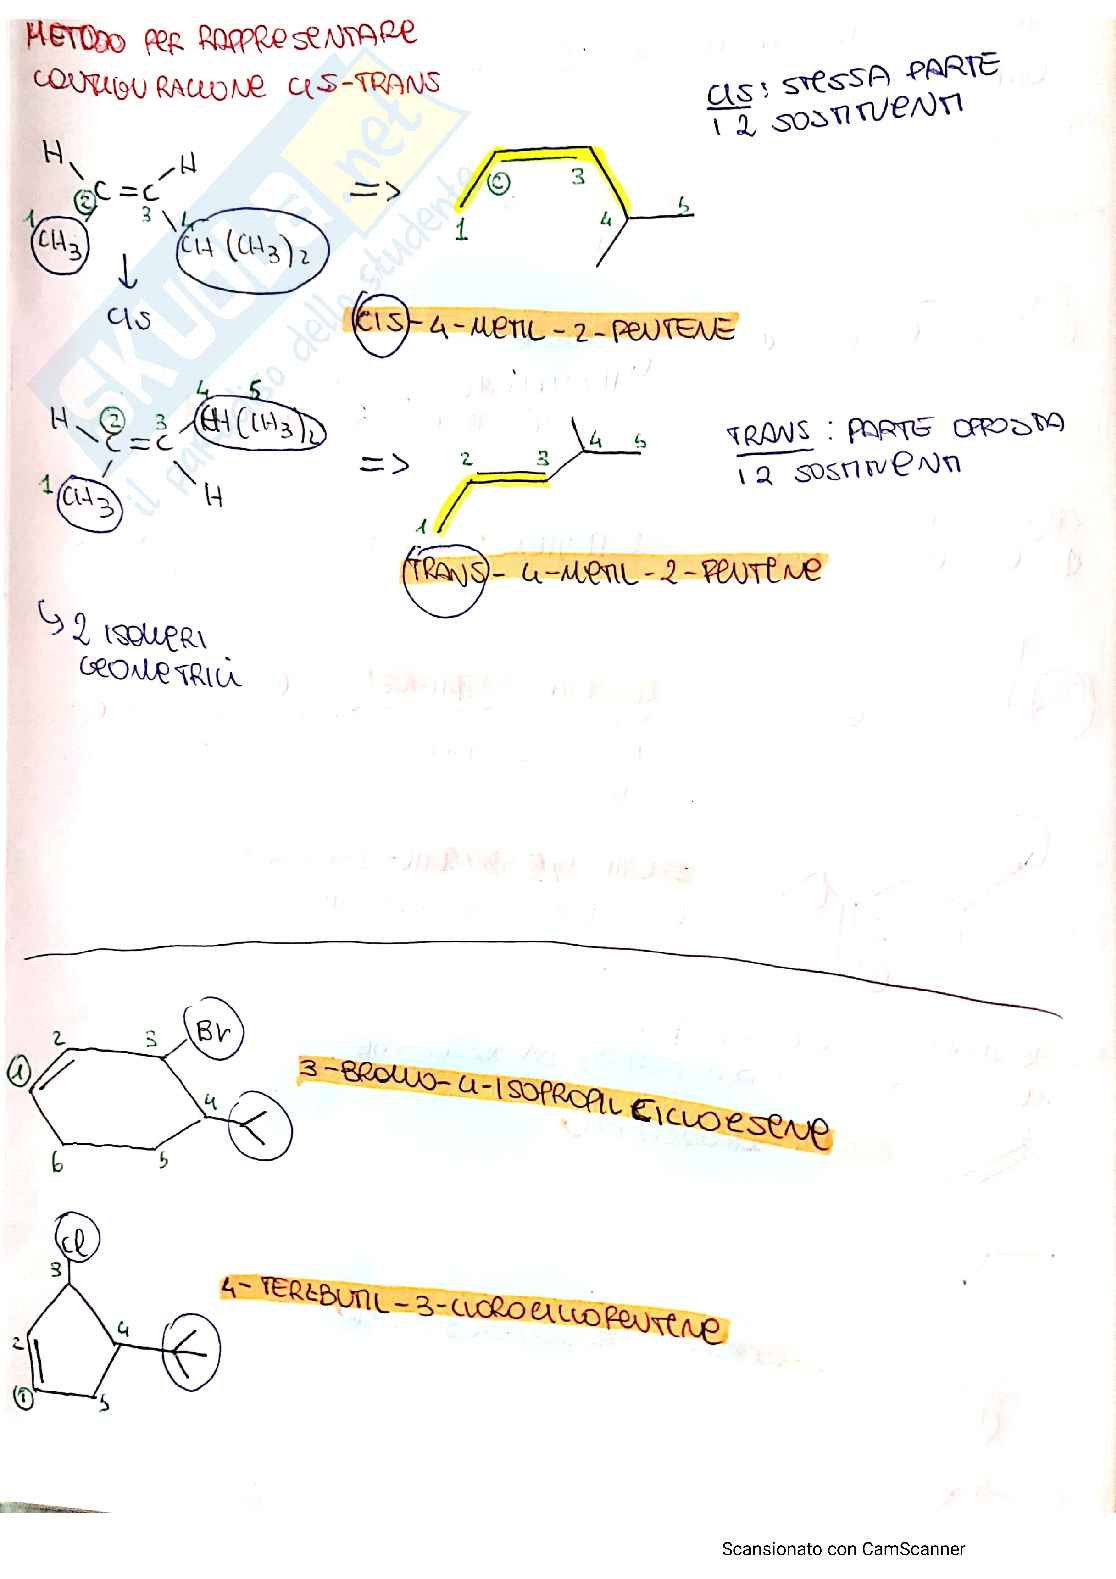 METODO PER RAPPRESENTARE
CONFIGURAZIONE CIS-TRANS
CIS: STESSA PARTE
I 2 SOSTITUENTI
H
H
2 C = C
3
1
4
CH3
CH(CH3)2
CIS
=>
2
3
1
4
5
CIS-4-METIL-2-PENTENE
4 5
H
2
3
CH(CH3)2
C = C
1
CH3
H
=>
2
3
4
5
1
TRANS : PARTE OPPOSTA
I 2 SOSTITUENTI
TRANS-4-METIL-2-PENTENE
2 ISOMERI
GEOMETRICI
Br
2
3
1
4
6
5
3-BROMO-4-ISOPROPIL CICLOESENE
Cl
3
2
4
1
5
4-TERZBUTIL-3-CLOROCICLOPENTENE
SKUOLA.net
il paradiso dello studente
Scansionato con CamScanner